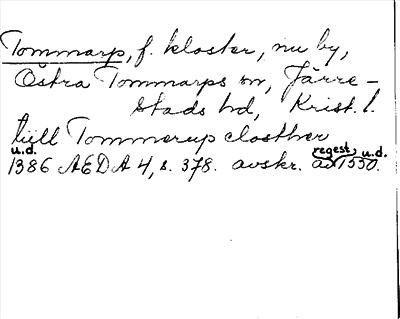 Tommarp, f. kloster, nu by,
Östra Tommarps sn, Järre-
stads hd, Krist. l.
till Tommerup closther
u.d. regest, u.d.
1386 ÆDA 4, s. 378. avskr. av 1550.